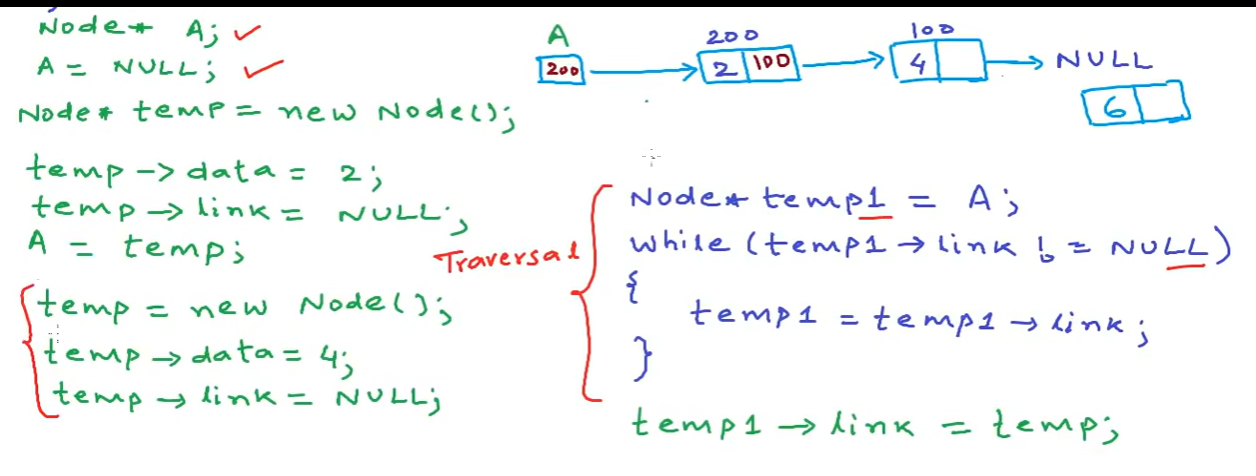 Node* A;
A = NULL;
Node* temp = new Node();
temp -> data = 2;
temp -> link = NULL;
A = temp;
temp = new Node();
temp -> data = 4;
temp -> link = NULL;
A
200
200
2 100
100
4
NULL
6
Traversal
Node* temp1 = A;
while (temp1 -> link != NULL)
{
temp1 = temp1 -> link;
}
temp1 -> link = temp;